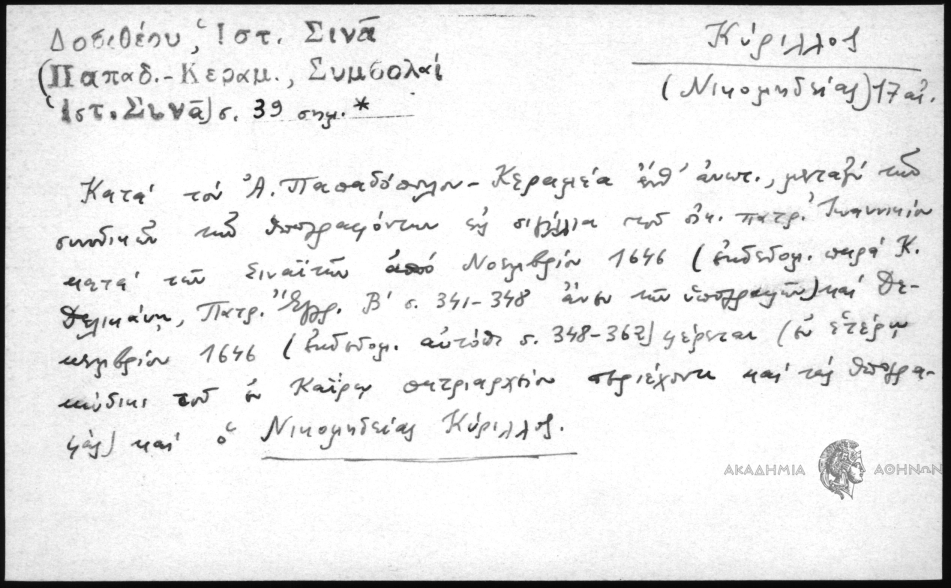 Δοσιθέου, Ἱστ. Σινᾶ
(Παπαδ.-Κεραμ., Συμβολαί
Ἱστ. Σινᾶ) σ. 39 σημ. *
Κύριλλος
(Νικομηδείας) 17 αἰ.
Κατά τόν Ἀ. Παπαδόπουλον-Κεραμέα ἐνθ' ἀνωτ., μεταξύ τῶν
συνοδικῶν τῶν ὑπογραφόντων εἰς σιγίλλια τοῦ οἰκ. πατρ. Ἰωαννικίου
κατά τῶν Σιναϊτῶν ἀπό Νοεμβρίου 1646 (ἐκδεδομ. παρά Κ.
Δελικάνη, Πατρ. Ἔγγρ. Β' σ. 341-348 ἄνευ τῶν ὑπογραφῶν) καί Δε-
κεμβρίου 1646 (ἐκδεδομ. αὐτόθι σ. 348-362) φέρεται (ἐν ἑτέρῳ
κώδικι τοῦ ἐν Καΐρῳ πατριαρχείου περιέχοντι καί τάς ὑπογρα-
φάς) καί ὁ Νικομηδείας Κύριλλος.
ΑΚΑΔΗΜΙΑ ΑΘΗΝΩΝ